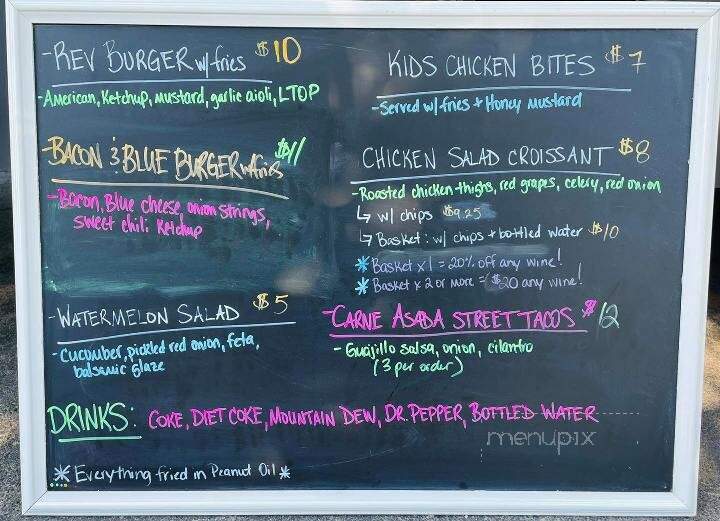 -REV BURGER w/fries $10
-American, Ketchup, mustard, garlic aioli, LTOP
-BACON & BLUE BURGER w/fries $11
-Bacon, Blue cheese, onion strings,
sweet chili Ketchup
-WATERMELON SALAD $5
-Cucumber, pickled red onion, feta,
balsamic glaze
KIDS CHICKEN BITES $7
-Served w/fries + Honey Mustard
CHICKEN SALAD CROISSANT $8
-Roasted chicken thighs, red grapes, celery, red onion
↳ w/ chips $9.25
↳ Basket: w/ chips + bottled water $10
*Basket x 1 = 20% off any wine!
*Basket x 2 or more = $20 any wine!
-CARNE ASADA STREET TACOS $12
-Guajillo salsa, onion, cilantro
(3 per order)
DRINKS: COKE, DIET COKE, MOUNTAIN DEW, DR. PEPPER, BOTTLED WATER
menupix
*Everything fried in Peanut Oil*